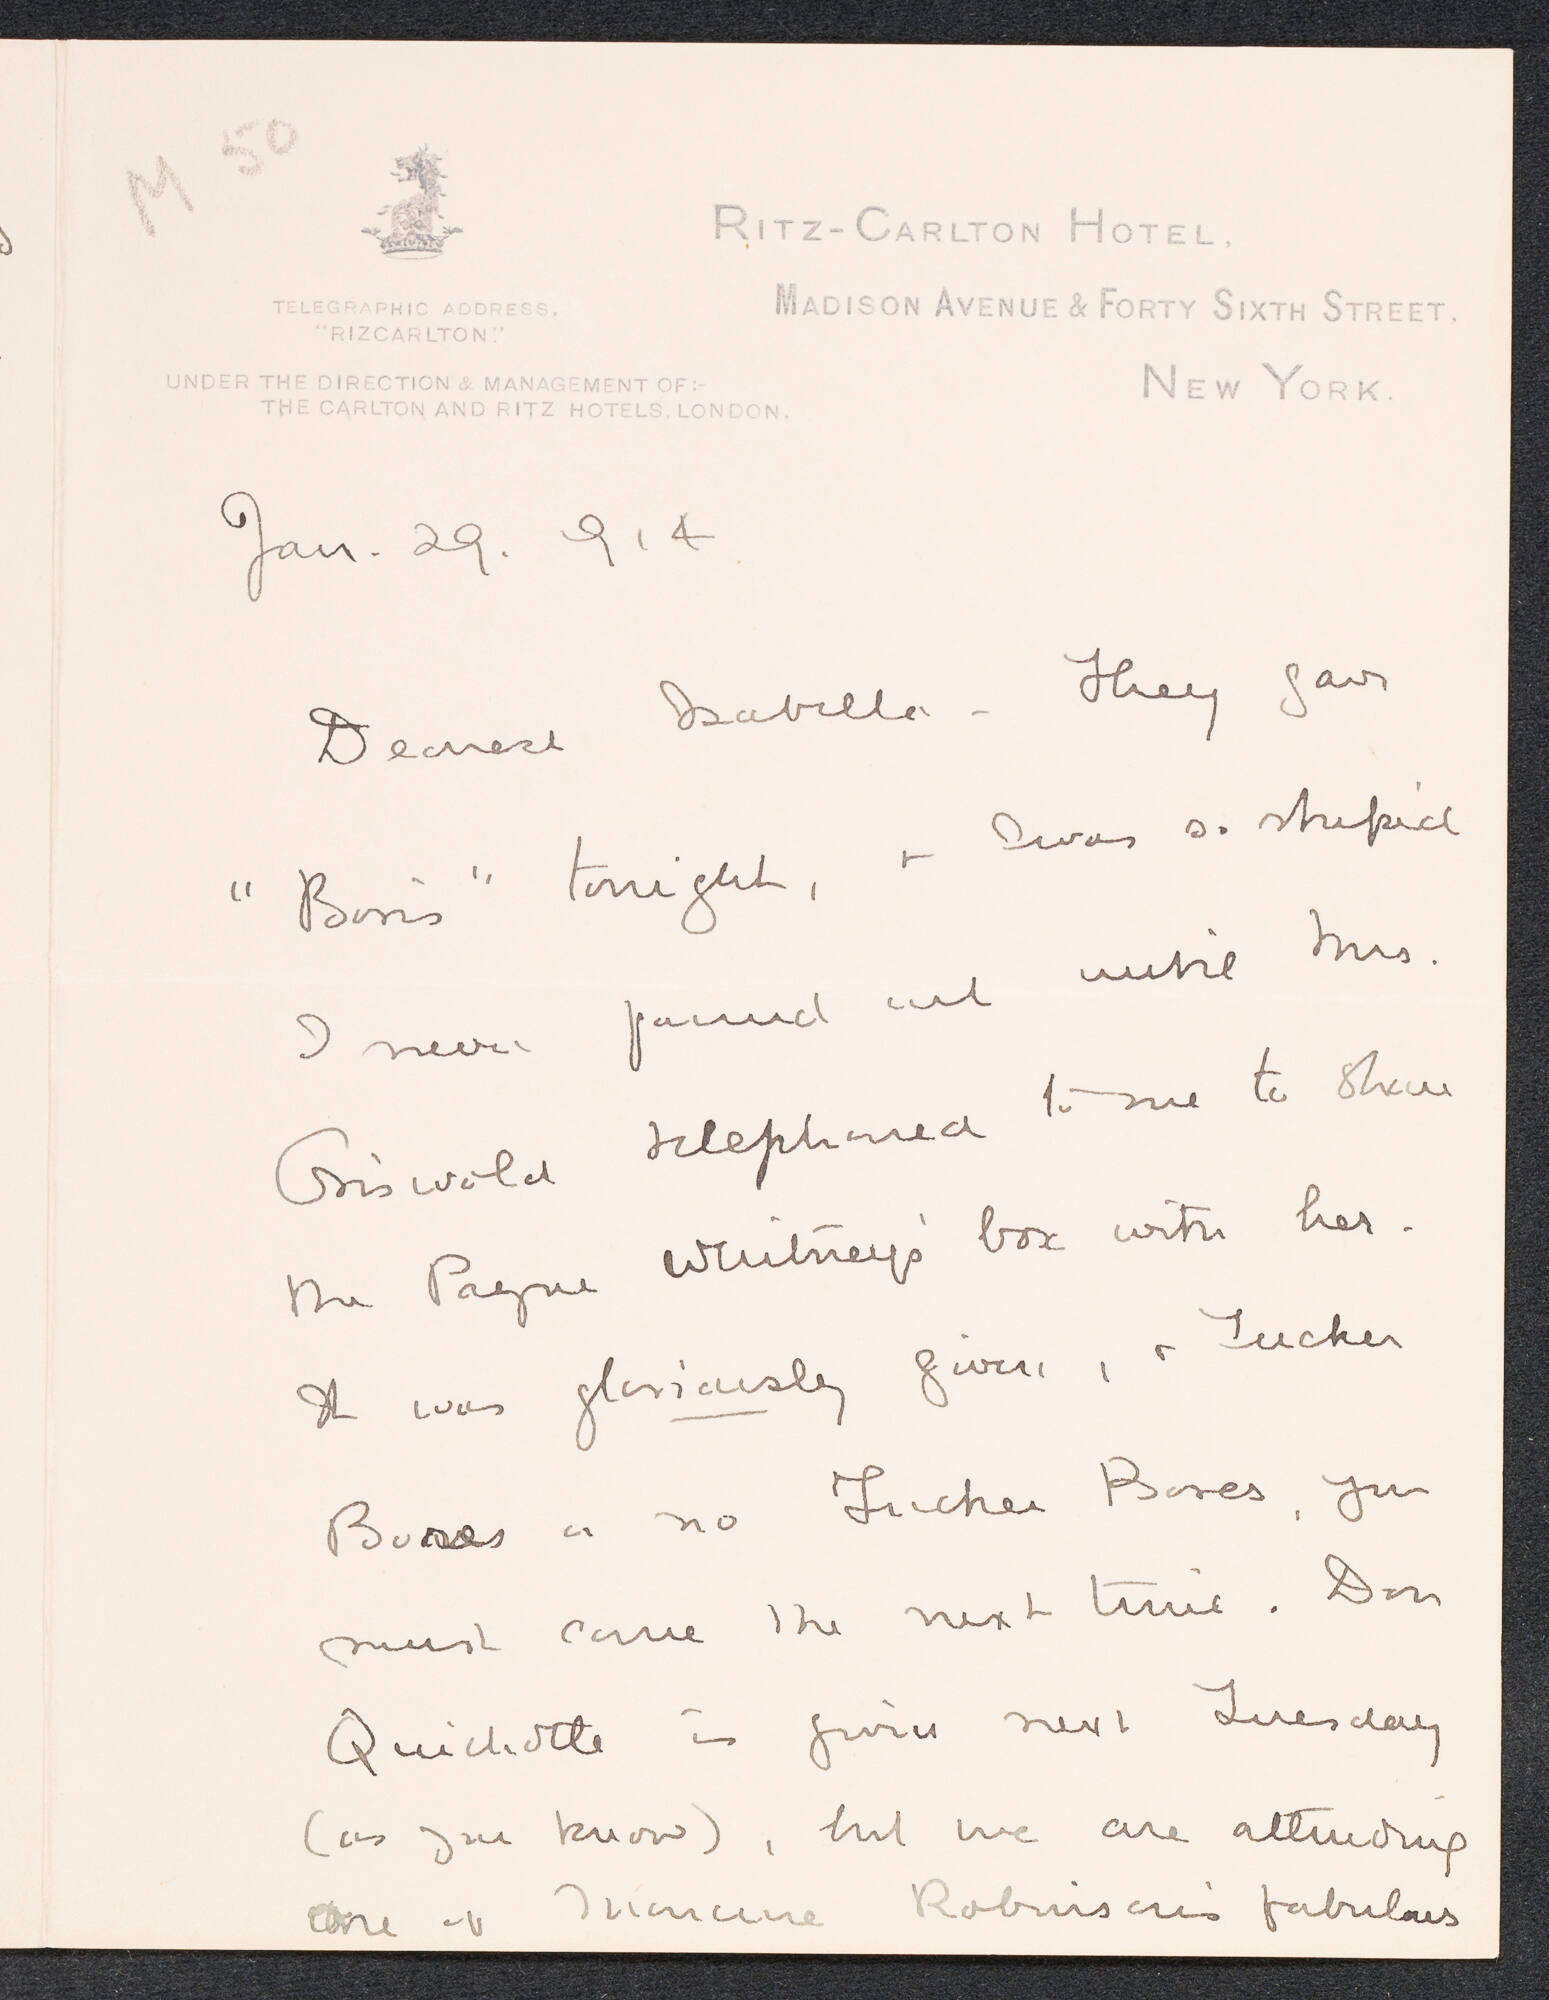 M 50
RITZ-CARLTON HOTEL,
MADISON AVENUE & FORTY SIXTH STREET,
NEW YORK.
TELEGRAPHIC ADDRESS,
"RIZCARLTON."
UNDER THE DIRECTION & MANAGEMENT OF:-
THE CARLTON AND RITZ HOTELS, LONDON.
Jan. 29. 914
Dearest Isabella - They gave
"Boris" tonight, + I was so stupid
I never found out until Mrs.
Griswold telephoned to me to share
the Payne Whitney's box with her.
It was gloriously given, + Tucker
Boxes or no Tucker Boxes, you
must come the next time. Don
Quichotte is given next Tuesday
(as you know), but we are attending
one of Monroe Robinson's fabulous